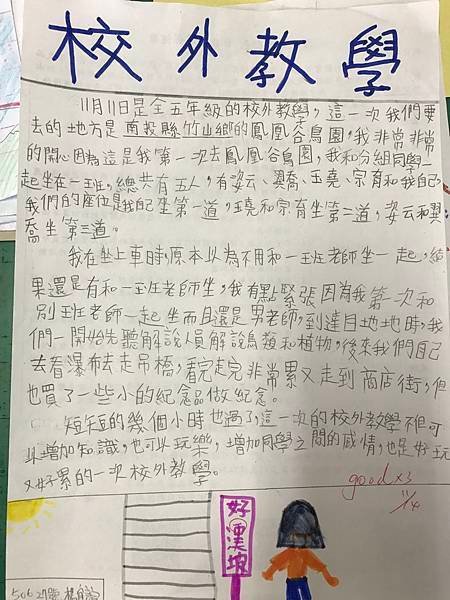 校外教學
11月11日是全五年級的校外教學,這一次我們要
去的地方是南投縣竹山鄉的鳳凰谷鳥園,我非常非常
的開心因為這是我第一次去鳳凰谷鳥園,我和分組同學一
起坐在一班,總共有五人,有姿云、翼喬、玉堯、宗育和我自己,
我們的座位是我自己坐第一道,玉堯和宗育坐第二道,姿云和翼
喬坐第三道。
我在坐上車時,原本以為不用和一班老師坐一起,結
果還是有和一班老師坐,我有點緊張因為我第一次和
別班老師一起坐而且還是男老師,到達目地地時,我
們一開始先聽解說人員解說鳥類和植物,後來我們自己
去看瀑布去走吊橋,看完走完非常累又走到商店街,但
也買了一些小的紀念品做紀念。
短短的幾個小時也過了,這一次的校外教學不但可
以增加知識,也可以玩樂,增加同學之間的感情,也是好玩
又好累的一次校外教學。
good×3
11/14
好漢坡
506 27號